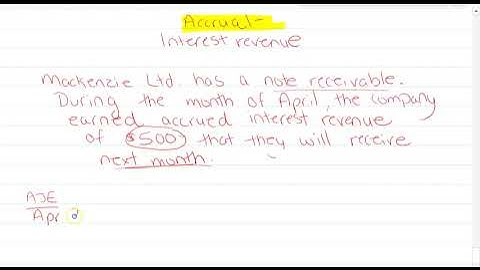 Accrual-
Interest revenue
Mackenzie Ltd. has a note receivable.
During the month of April, the company
earned accrued interest revenue
of $500 that they will receive
next month.
AJE
Apr